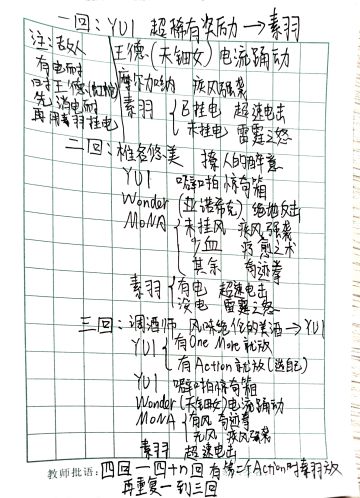 一回：YUI 超稀有姿后力 → 素羽
注：敌人 王德.(天钿女) 电流踊动
有电耐 摩尔加纳 疾风强袭
时王德(红桃)
先消电耐 素羽 { 已挂电 超速电击
再用素羽挂电 未挂电 雷霆之怒
二回：椎名悠美 撩人的醉意
YUI 噼啪惊奇箱
Wonder (亚诺希克) 绝地反击
MONA { 未挂风 疾风强袭
少血 疗愈之术
其余 奇迹拳
素羽 { 有电 超速电击
没电 雷霆之怒
三回：调酒师 风味绝伦的美酒 → YUI
YUI { 有One More就放
有Action就放(选自己)
YUI 噼啪惊奇箱
Wonder (天钿女) 电流踊动
MONA { 有风 奇迹拳
无风 疾风强袭
素羽 超速电击
教师批语：四回－四+n回 有第二个Action时素羽放
再重复一到三回